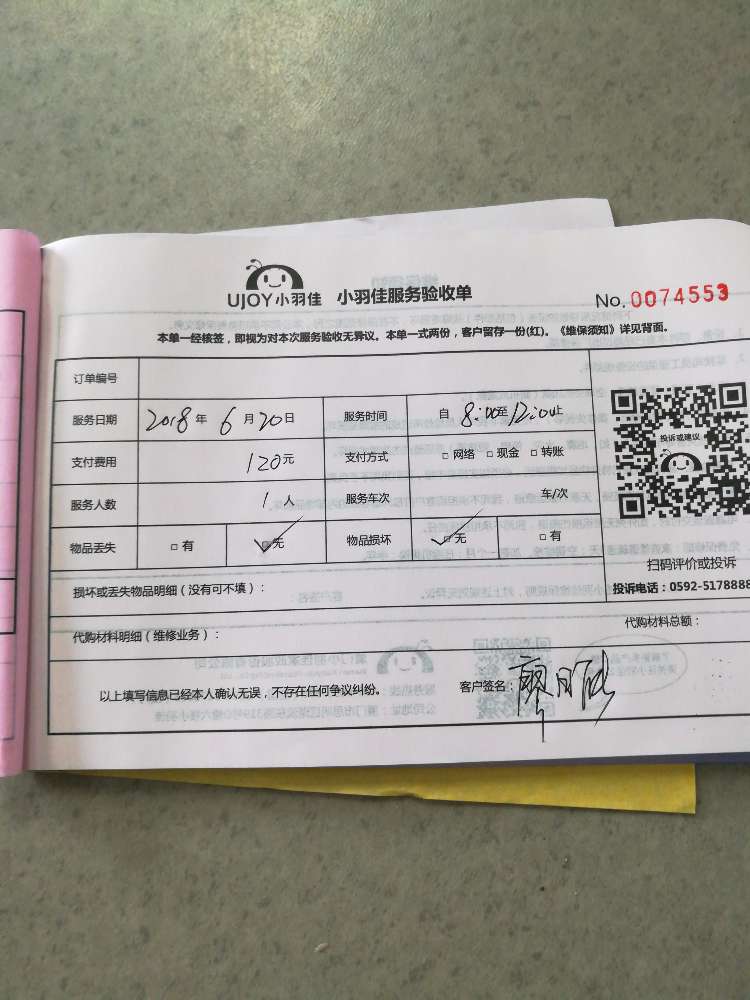 UJOY小羽佳 小羽佳服务验收单 No. 0074553
本单一经核签，即视为对本次服务验收无异议。本单一式两份，客户留存一份(红)。《维保须知》详见背面。
订单编号
服务日期 2018 年 6 月 20 日 服务时间 自 8:00 至 12:00 止
支付费用 120 元 支付方式 □ 网络 □ 现金 □ 转账
服务人数 1 人 服务车次 车/次
物品丢失 □ 有 ✓ □ 无 物品损坏 ✓ □ 无 □ 有
投诉或建议
扫码评价或投诉
投诉电话：0592-5178888
损坏或丢失物品明细（没有可不填）：
代购材料明细（维修业务）： 代购材料总额：
以上填写信息已经本人确认无误，不存在任何争议纠纷。 客户签名：廖日